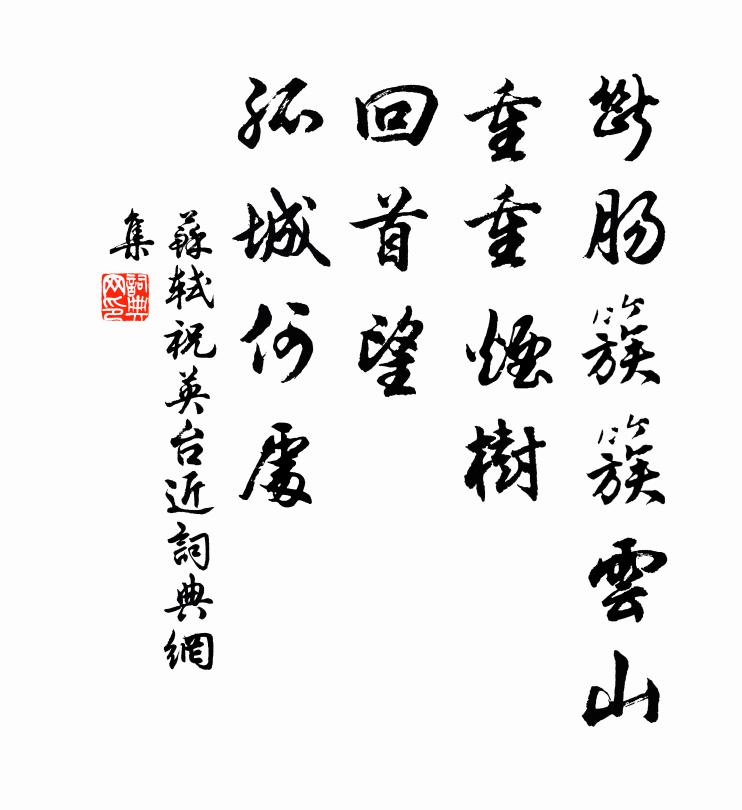 斷腸簇簇雲山
重重煙樹
回首望
孤城何處
蘇軾祝英台近詞典網
集
詞典网印